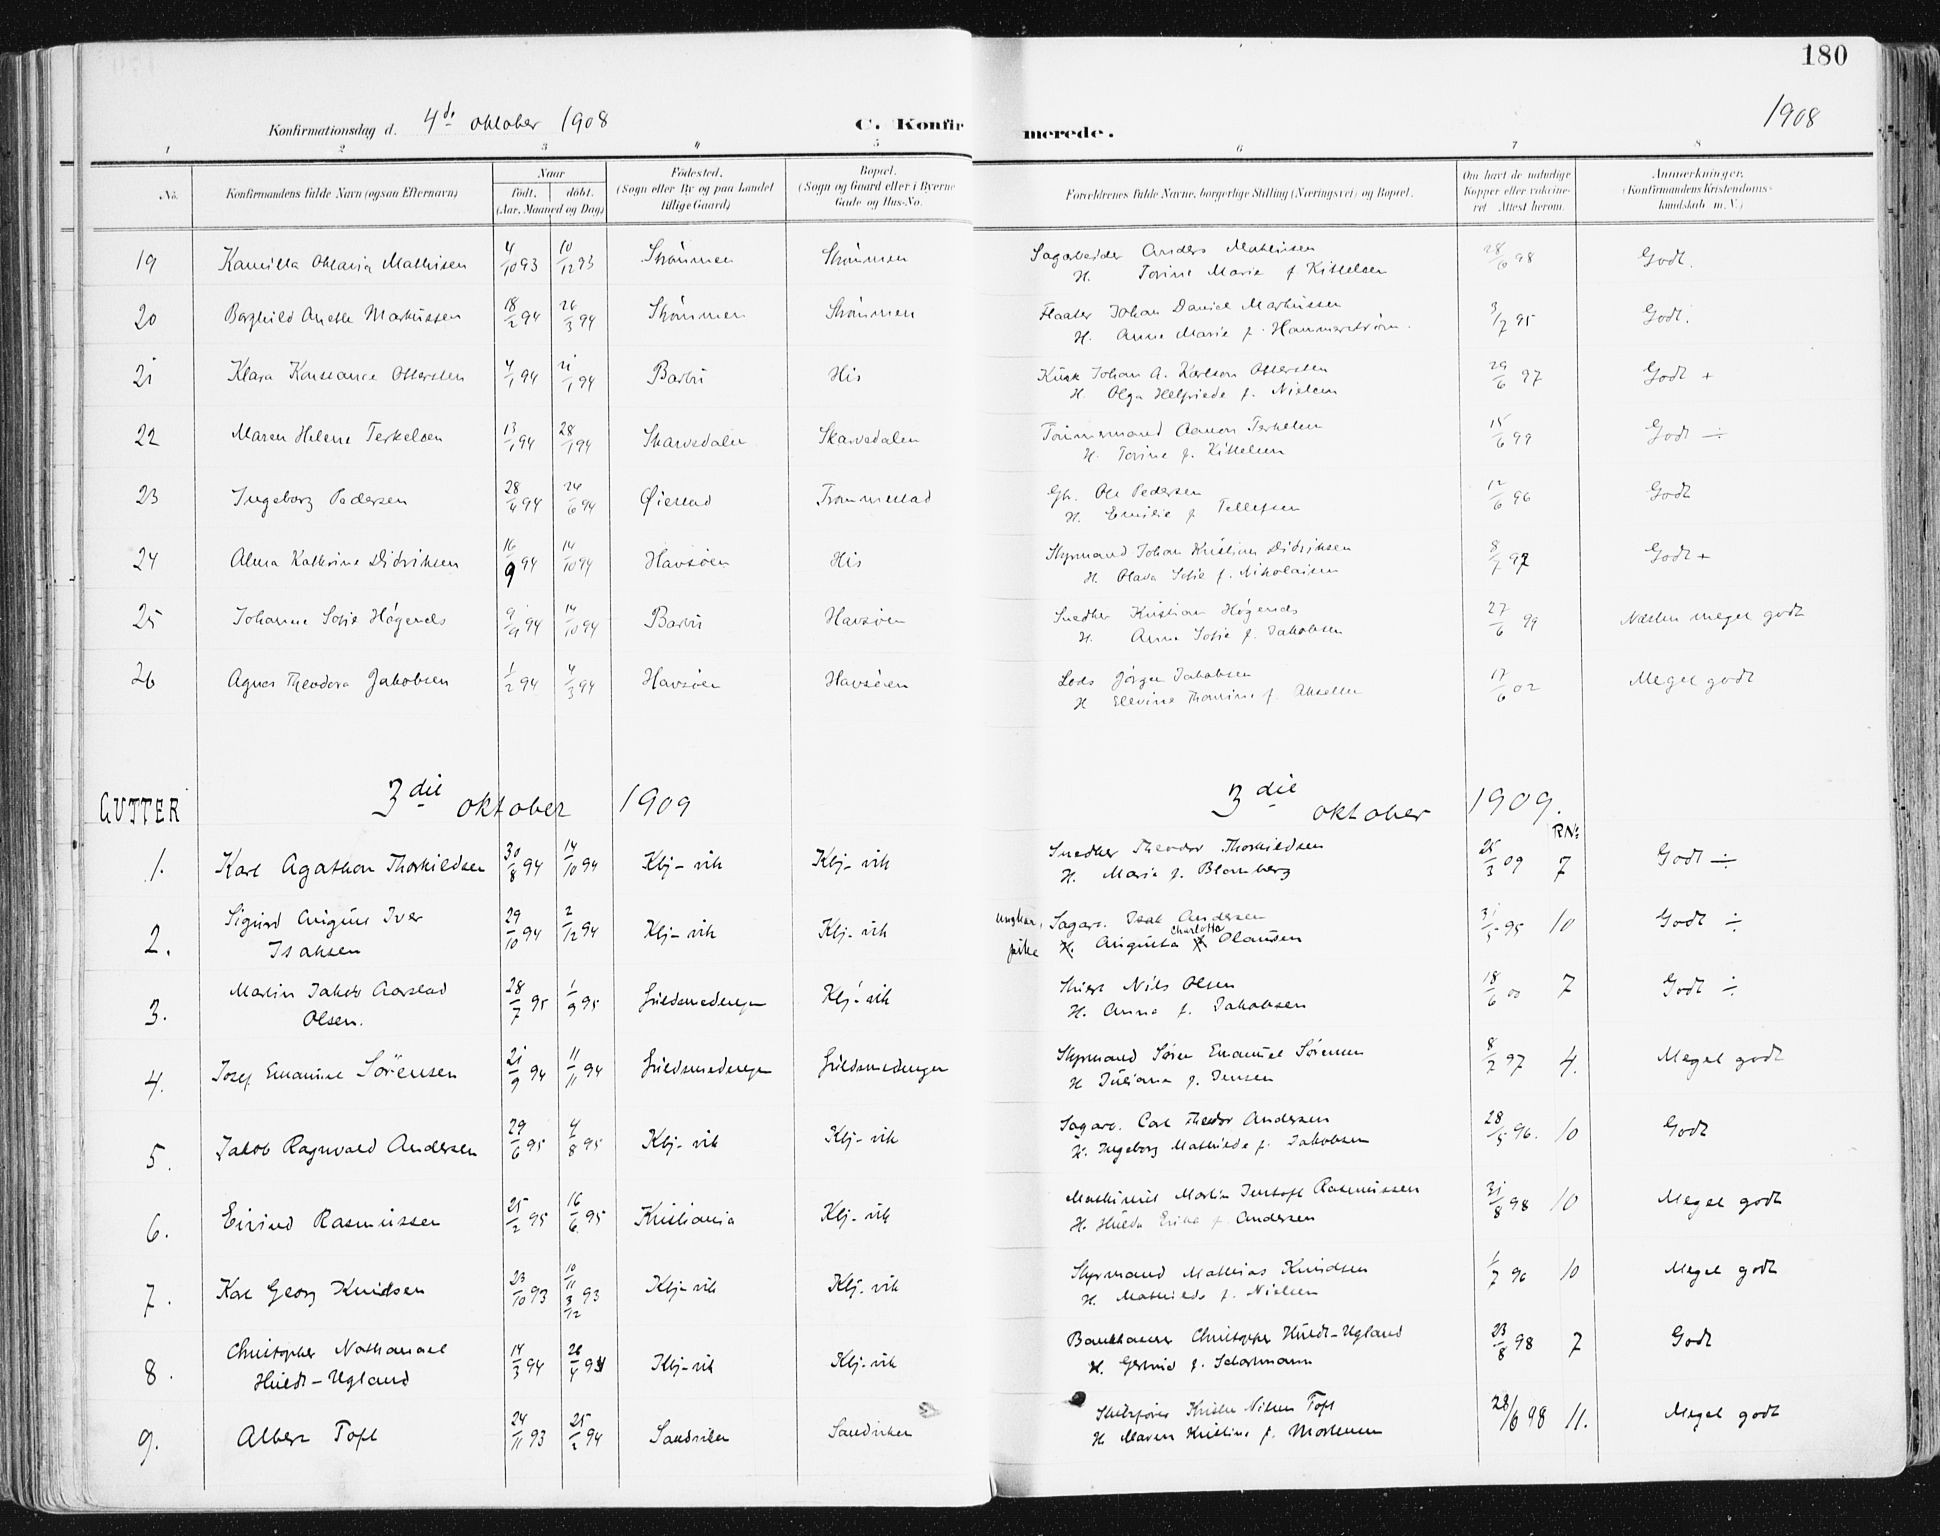 180
Konfirmationsdag d. 4de oktober 1908 C. Konfirmerede. 1908
1 2 3 4 5 6 7 8
No. Konfirmandens fulde Navn (ogsaa Efternavn) Naar født. døbt. (Aar, Maaned og Dag) Fødested. (Sogn eller By og paa Landet tillige Gaard) Bopæl. (Sogn og Gaard eller i Byerne Gade og Hus-No. Forældrenes fulde Navne, borgerlige Stilling (Næringsvei) og Bopæl. Om havt de naturlige Kopper eller vaccineret. Attest herom. Anmerkninger. (Konfirmandens Kristendomskundskab m. V.)
19 Kamilla Oktavia Mathisen 4/10 93 10/12 93 Strømmen Strømmen Sagarbeider Anders Mathisen 28/6 98 Godt.
H. Torine Marie f. Kittelsen
20 Borghild Anette Markussen 18/2 94 26/3 94 Strømmen Strømmen Johan Daniel Markussen 3/7 95 Godt.
H. Anne Marie f. Hammerstrøm.
21 Klara Konstance Ottersten 4/1 94 21/1 94 Barbu His Kusk Johan A. Karlson Ottersten 29/6 97 Godt +
H. Olga Helfriede f. Nielsen
22 Maren Helene Terkelsen 13/1 94 28/1 94 Skarvedalen Skarvedalen Tømmermand Aanon Terkelsen 15/6 99 Godt ÷
H. Torine f. Kittelsen
23 Ingeborg Pedersen 28/4 94 24/6 94 Øiestad Trommestad Gbr. Ole Pedersen 12/6 96 Godt
H. Emilie f. Tellefsen
24 Alma Kathrine Didriksen 16/9 94 14/10 94 Havsøen His Styrmand Johan Kristian Didriksen 8/7 97 Godt +
H. Olava Sofie f. Nikolaisen
25 Johanne Sofie Högends 9/9 94 14/10 94 Barbu Havsøen Snedker Kristian Högends 27/6 99 Næsten meget godt
H. Anne Sofie f. Jakobsen
26 Agnes Theodora Jakobsen 1/2 94 4/3 94 Havsøen Havsøen Lods Jørgen Jakobsen 17/6 02 Meget godt
H Elevine Thomine f. Akselsen
GUTTER 3die oktober 1909 3die oktober 1909. RN:
1. Karl Agathon Thorkildsen 30/8 94 14/10 94 Kbj-vik Kbj-vik Snedker Theodor Thorkildsen 25/3 09 7 Godt ÷
H. Maria f. Blomberg
2. Sigurd August Iver 29/10 94 2/12 94 Kbj-vik Kbj-vik ungkar, Sagarb. Isak Andersen 31/5 95 10 Godt ÷
Isaksen pike H. Augusta Charlotta Olausen
3. Martin Jakob Aarstad 28/7 95 1/9 95 Guldsmedengen Kbj-vik Nils Olsen 18/6 00 7 Godt ÷
Olsen. H. Anna f. Jakobsen
4. Josef Emanuel Sörensen 21/9 94 11/11 94 Guldsmedengen Guldsmedengen Styrmand Sören Emanuel Sörensen 8/2 97 4. Meget godt
H Juliana f. Jensen
5. Jakob Ragnvald Andersen 29/6 95 4/8 95 Kbj-vik Kbj-vik Sagarb. Carl Theodor Andersen 28/5 96. 10 Godt
H. Ingeborg Mathilde f. Jakobsen
6. Eivind Rasmussen 25/2 95 16/6 95 Kristiania Kbj-vik Maskinist Martin Rasmussen 31/8 98 10 Meget godt
H. Hulda f. Andersen
7. Karl Georg Knudsen 23/10 93 10/11 3/12 93 Kbj-vik Kbj-vik Styrmand Mathias Knudsen 1/7 96 10 Meget godt
H. Mathilde f. Nielsen
8. Christopher Nathanael 14/3 94 26/4 94 Kbj-vik Kbj-vik Bankkasser Christopher Huidt-Ugland 23/8 98 7 Godt
Huidt-Ugland H. Gertrud f.
9. Albert Toft 24/11 93 25/2 94 Sandviken Sandviken Skibsfører Nilsen Toft 28/6 98 11. Meget godt
H. Maren Kristine f. Mortensen